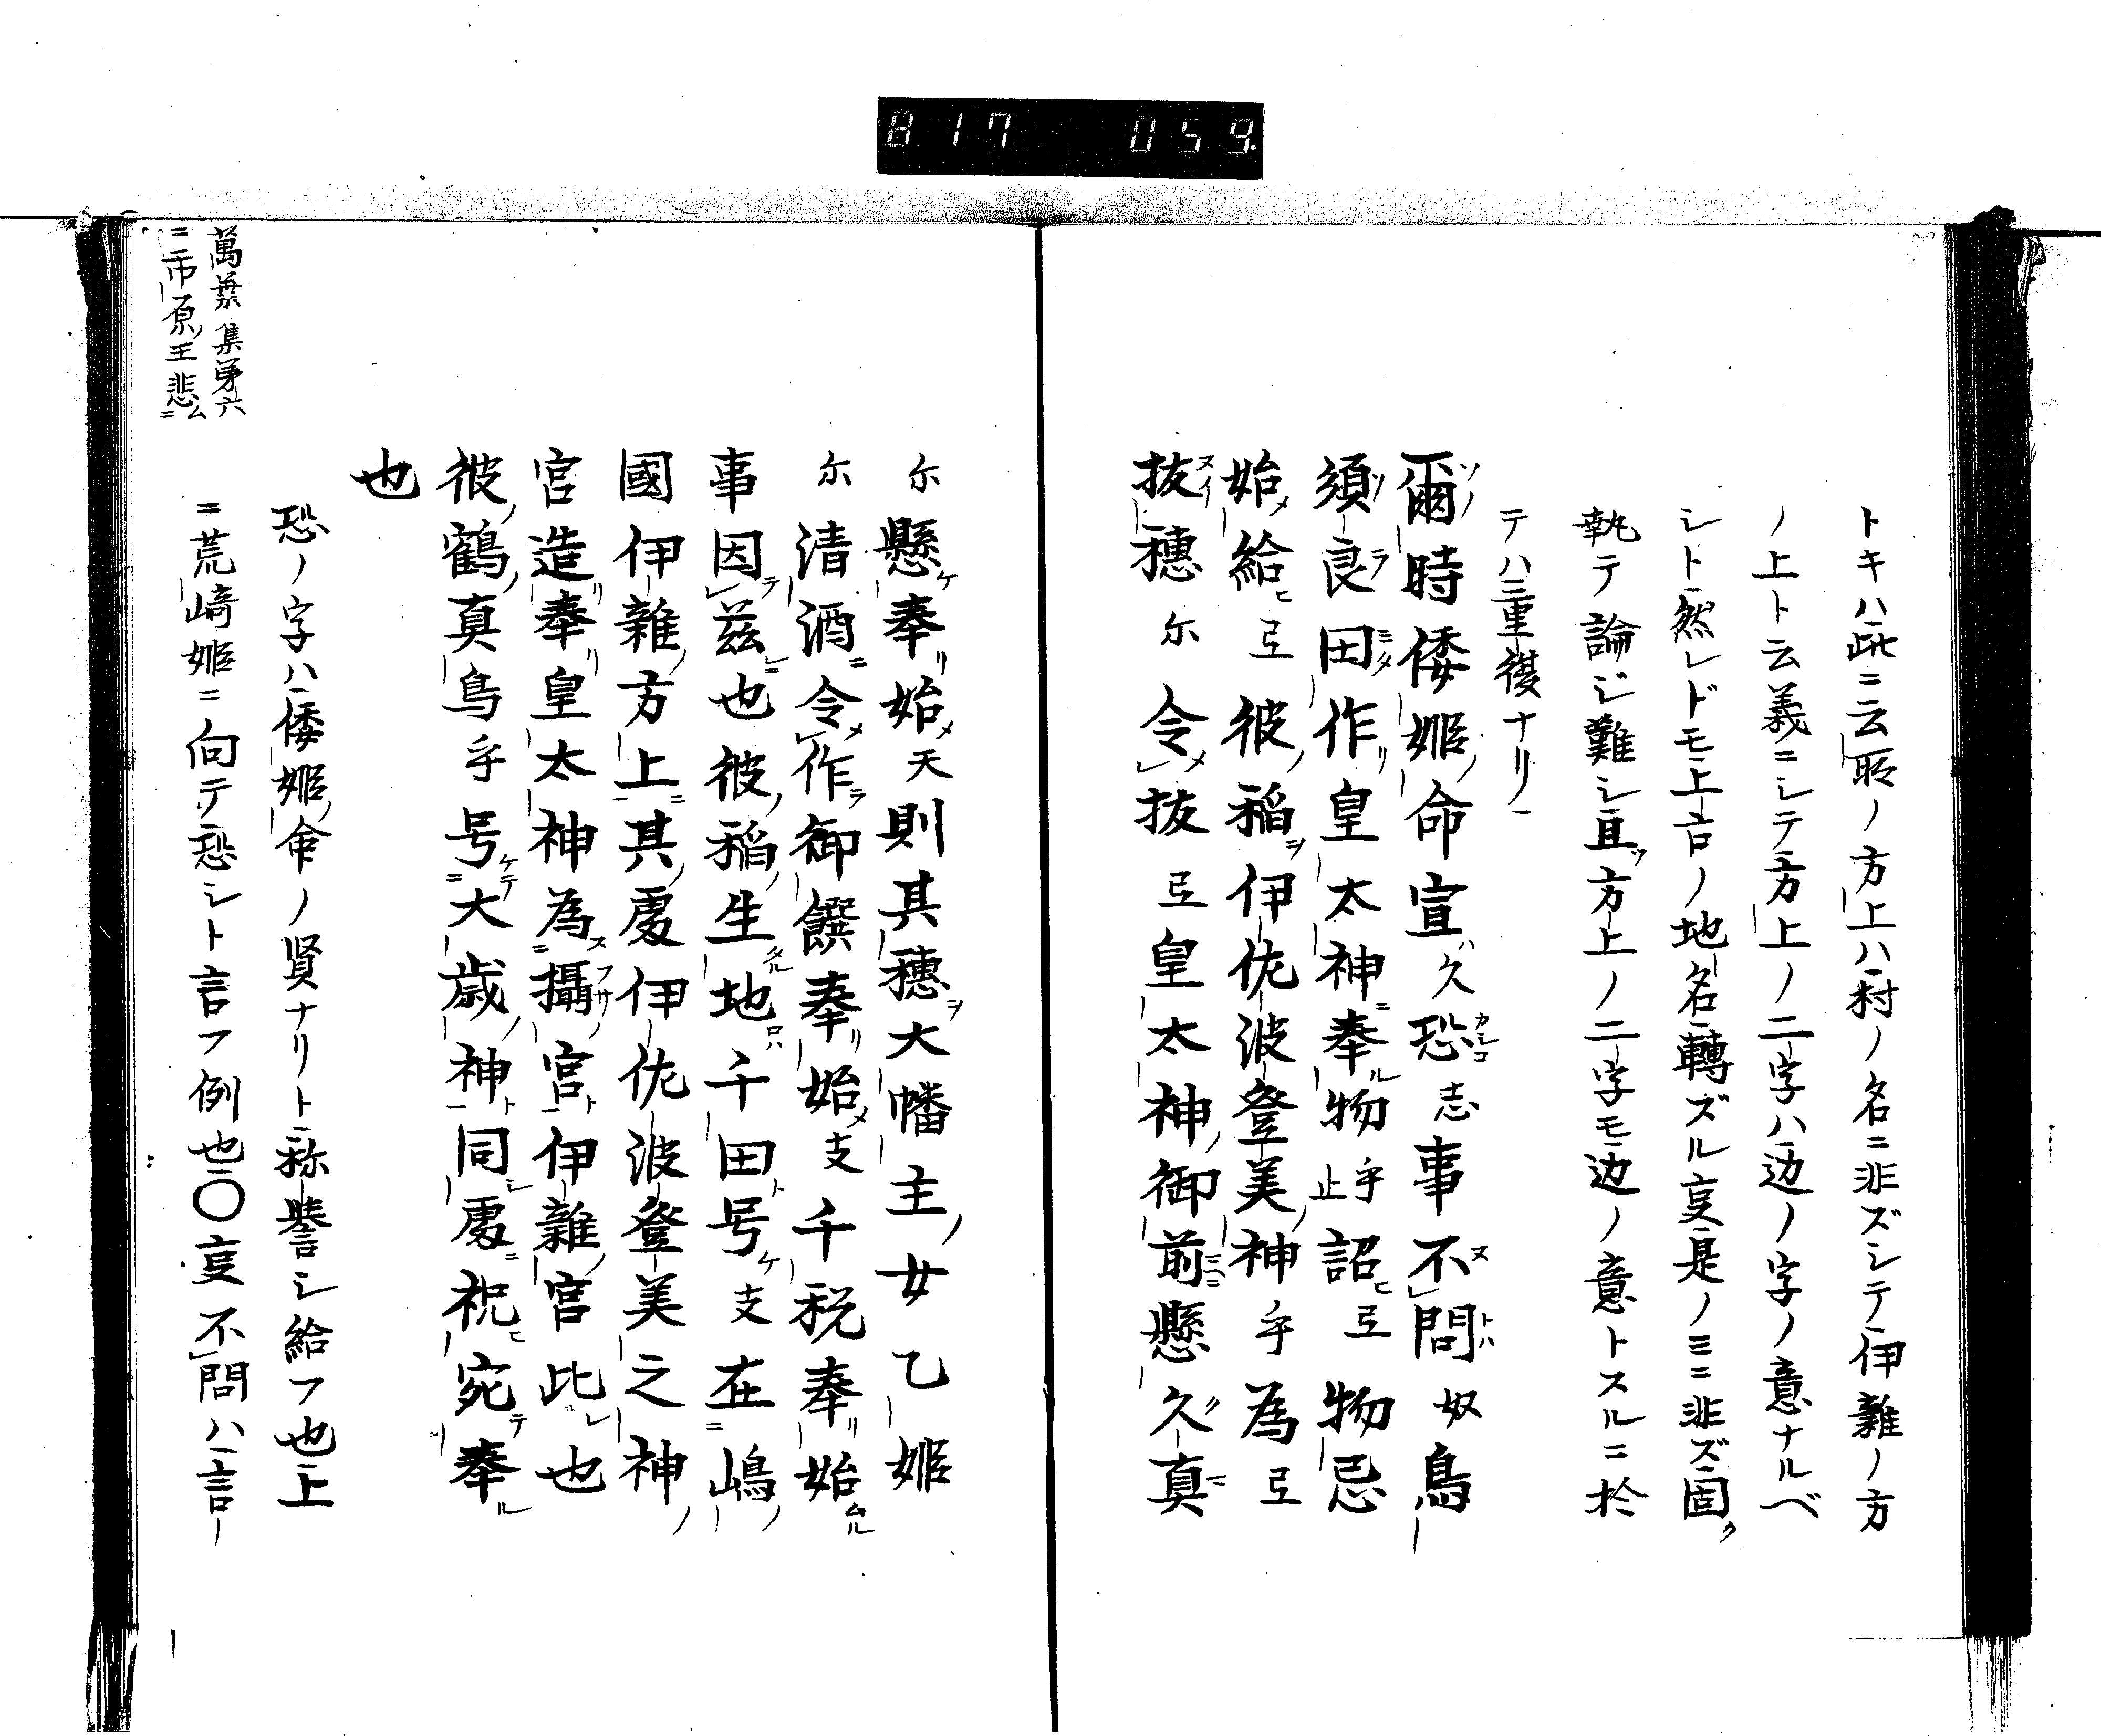 817 059.
トキハ此ニ云所ノ方上ハ村ノ名ニ非ズシテ伊雜ノ方
ノ上ト云義ニシテ方上ノ二字ハ边ノ字ノ意ナルベ
シト然レドモ上古ノ地名轉ズル叓是ノミニ非ズ固ク
執テ論ジ難シ且ツ方上ノ二字モ边ノ意トスルニ於
テハ三重複ナリ
爾時倭姫命宣久恐志事不問奴鳥
須良田作皇太神奉物乎止詔弖物忌
始給弖彼稲伊佐波登美神乎為弖
抜穂尓令抜弖皇太神御前懸久真
尓懸奉始天則其穂大幡主女乙姫
尓清酒令作御饌奉始支千税奉始
事因茲也彼稲生地千田号支在嶋
國伊雜方上其處伊佐波登美之神
宮造奉皇太神為攝宮伊雜宮此也
彼鶴真鳥乎号大歳神同處祝宛奉
也
恐ノ字ハ倭姫命ノ賢ナリト称誉シ給フ也上
ニ荒﨑姫ニ向テ恐シト言フ例也〇叓不問ハ言
萬葉集第六
ニ市原王悲ムニ